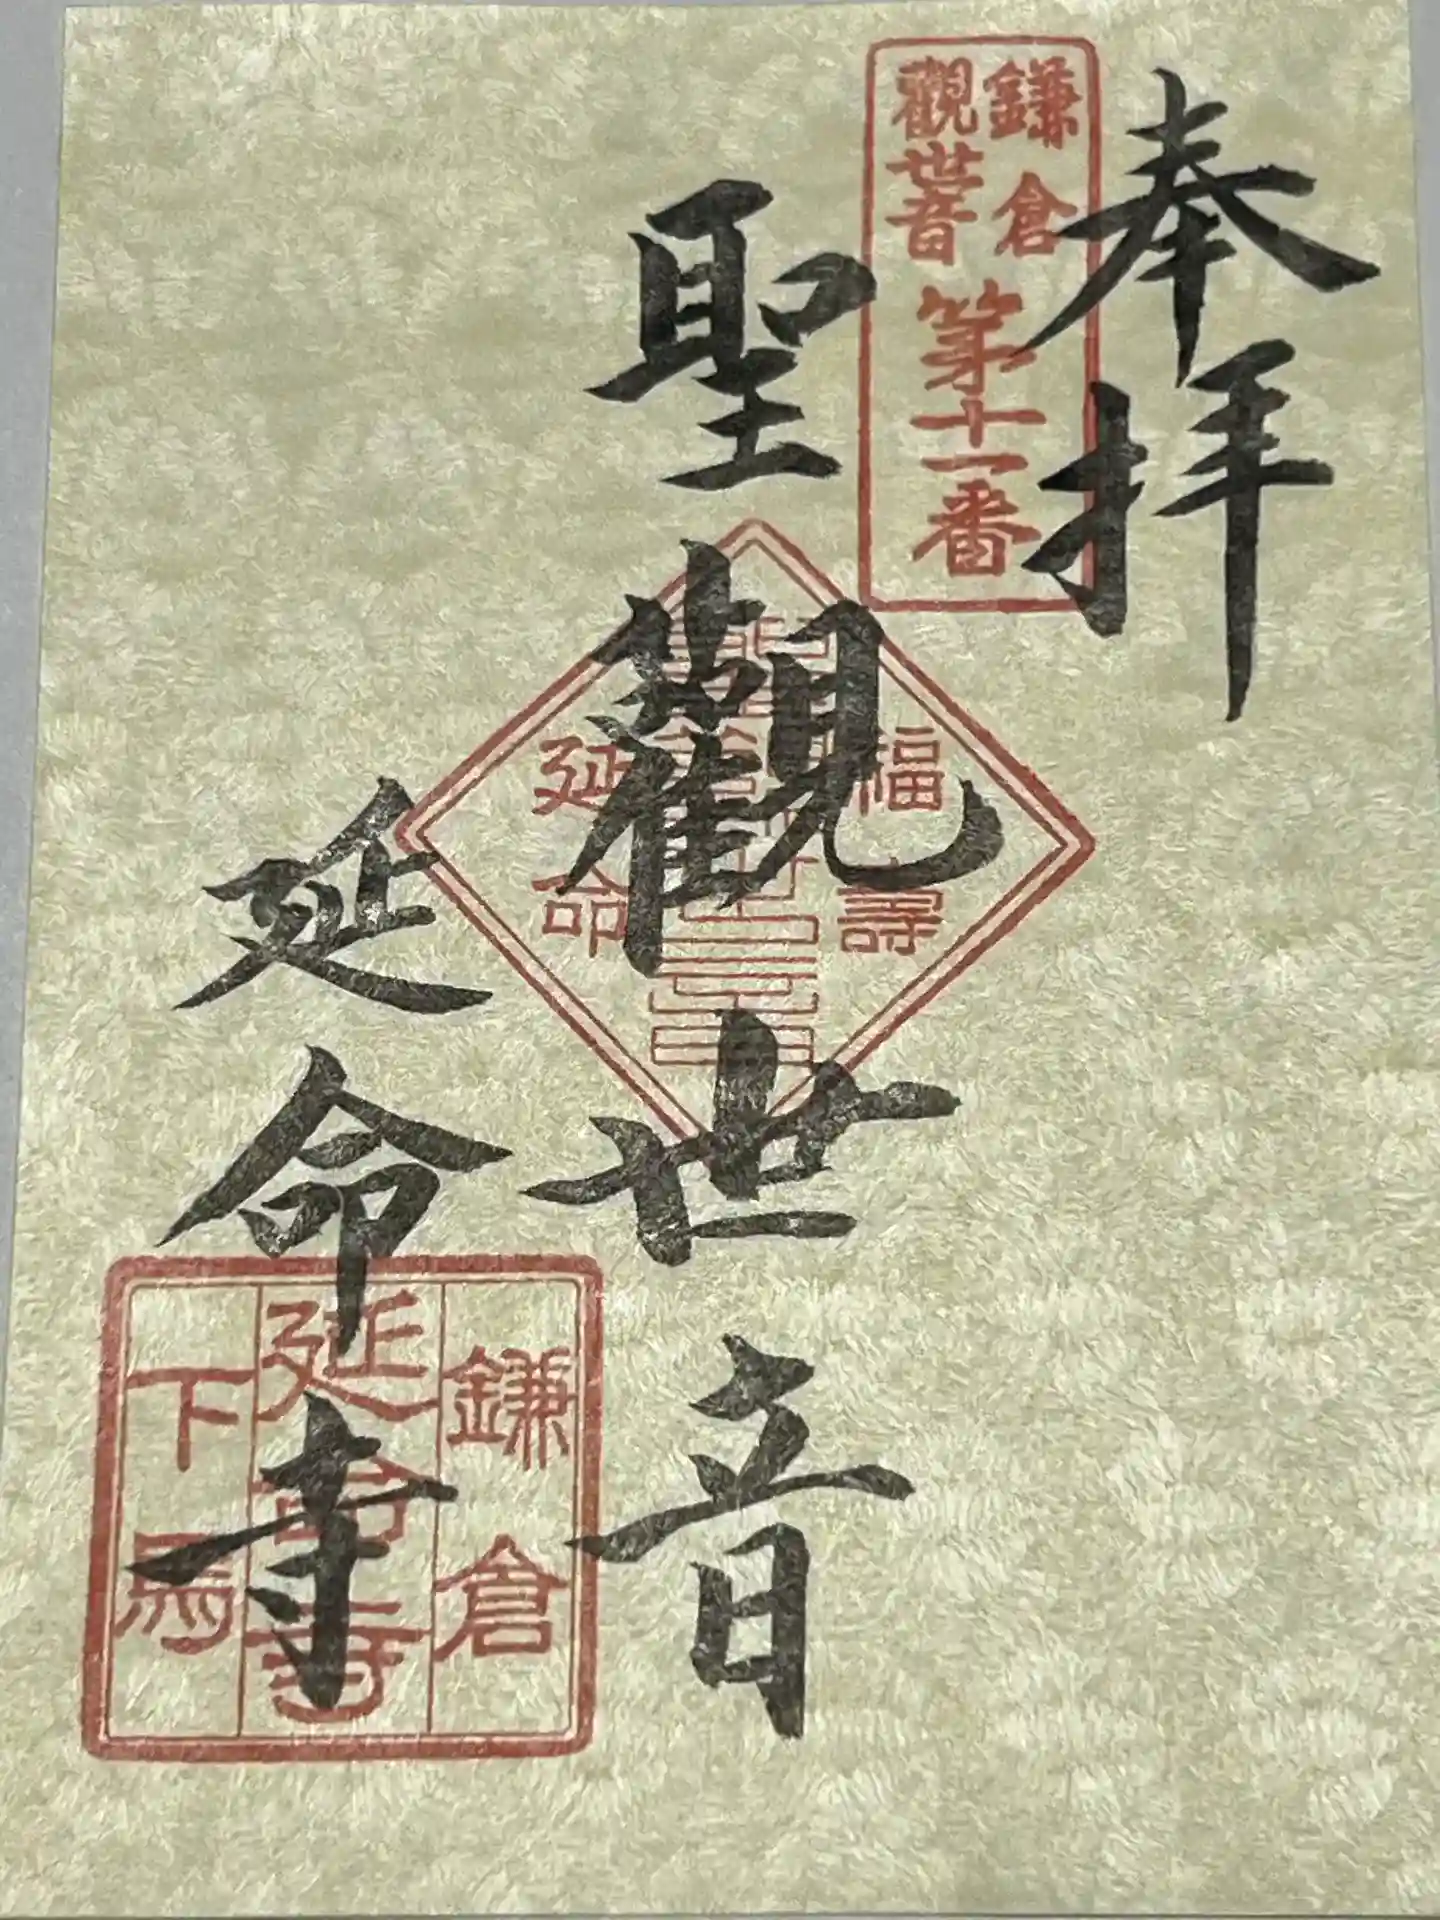 奉拝
鎌倉
觀世音
第十一番
聖觀世音
福壽
延命
延命寺
鎌倉
延命寺
下馬